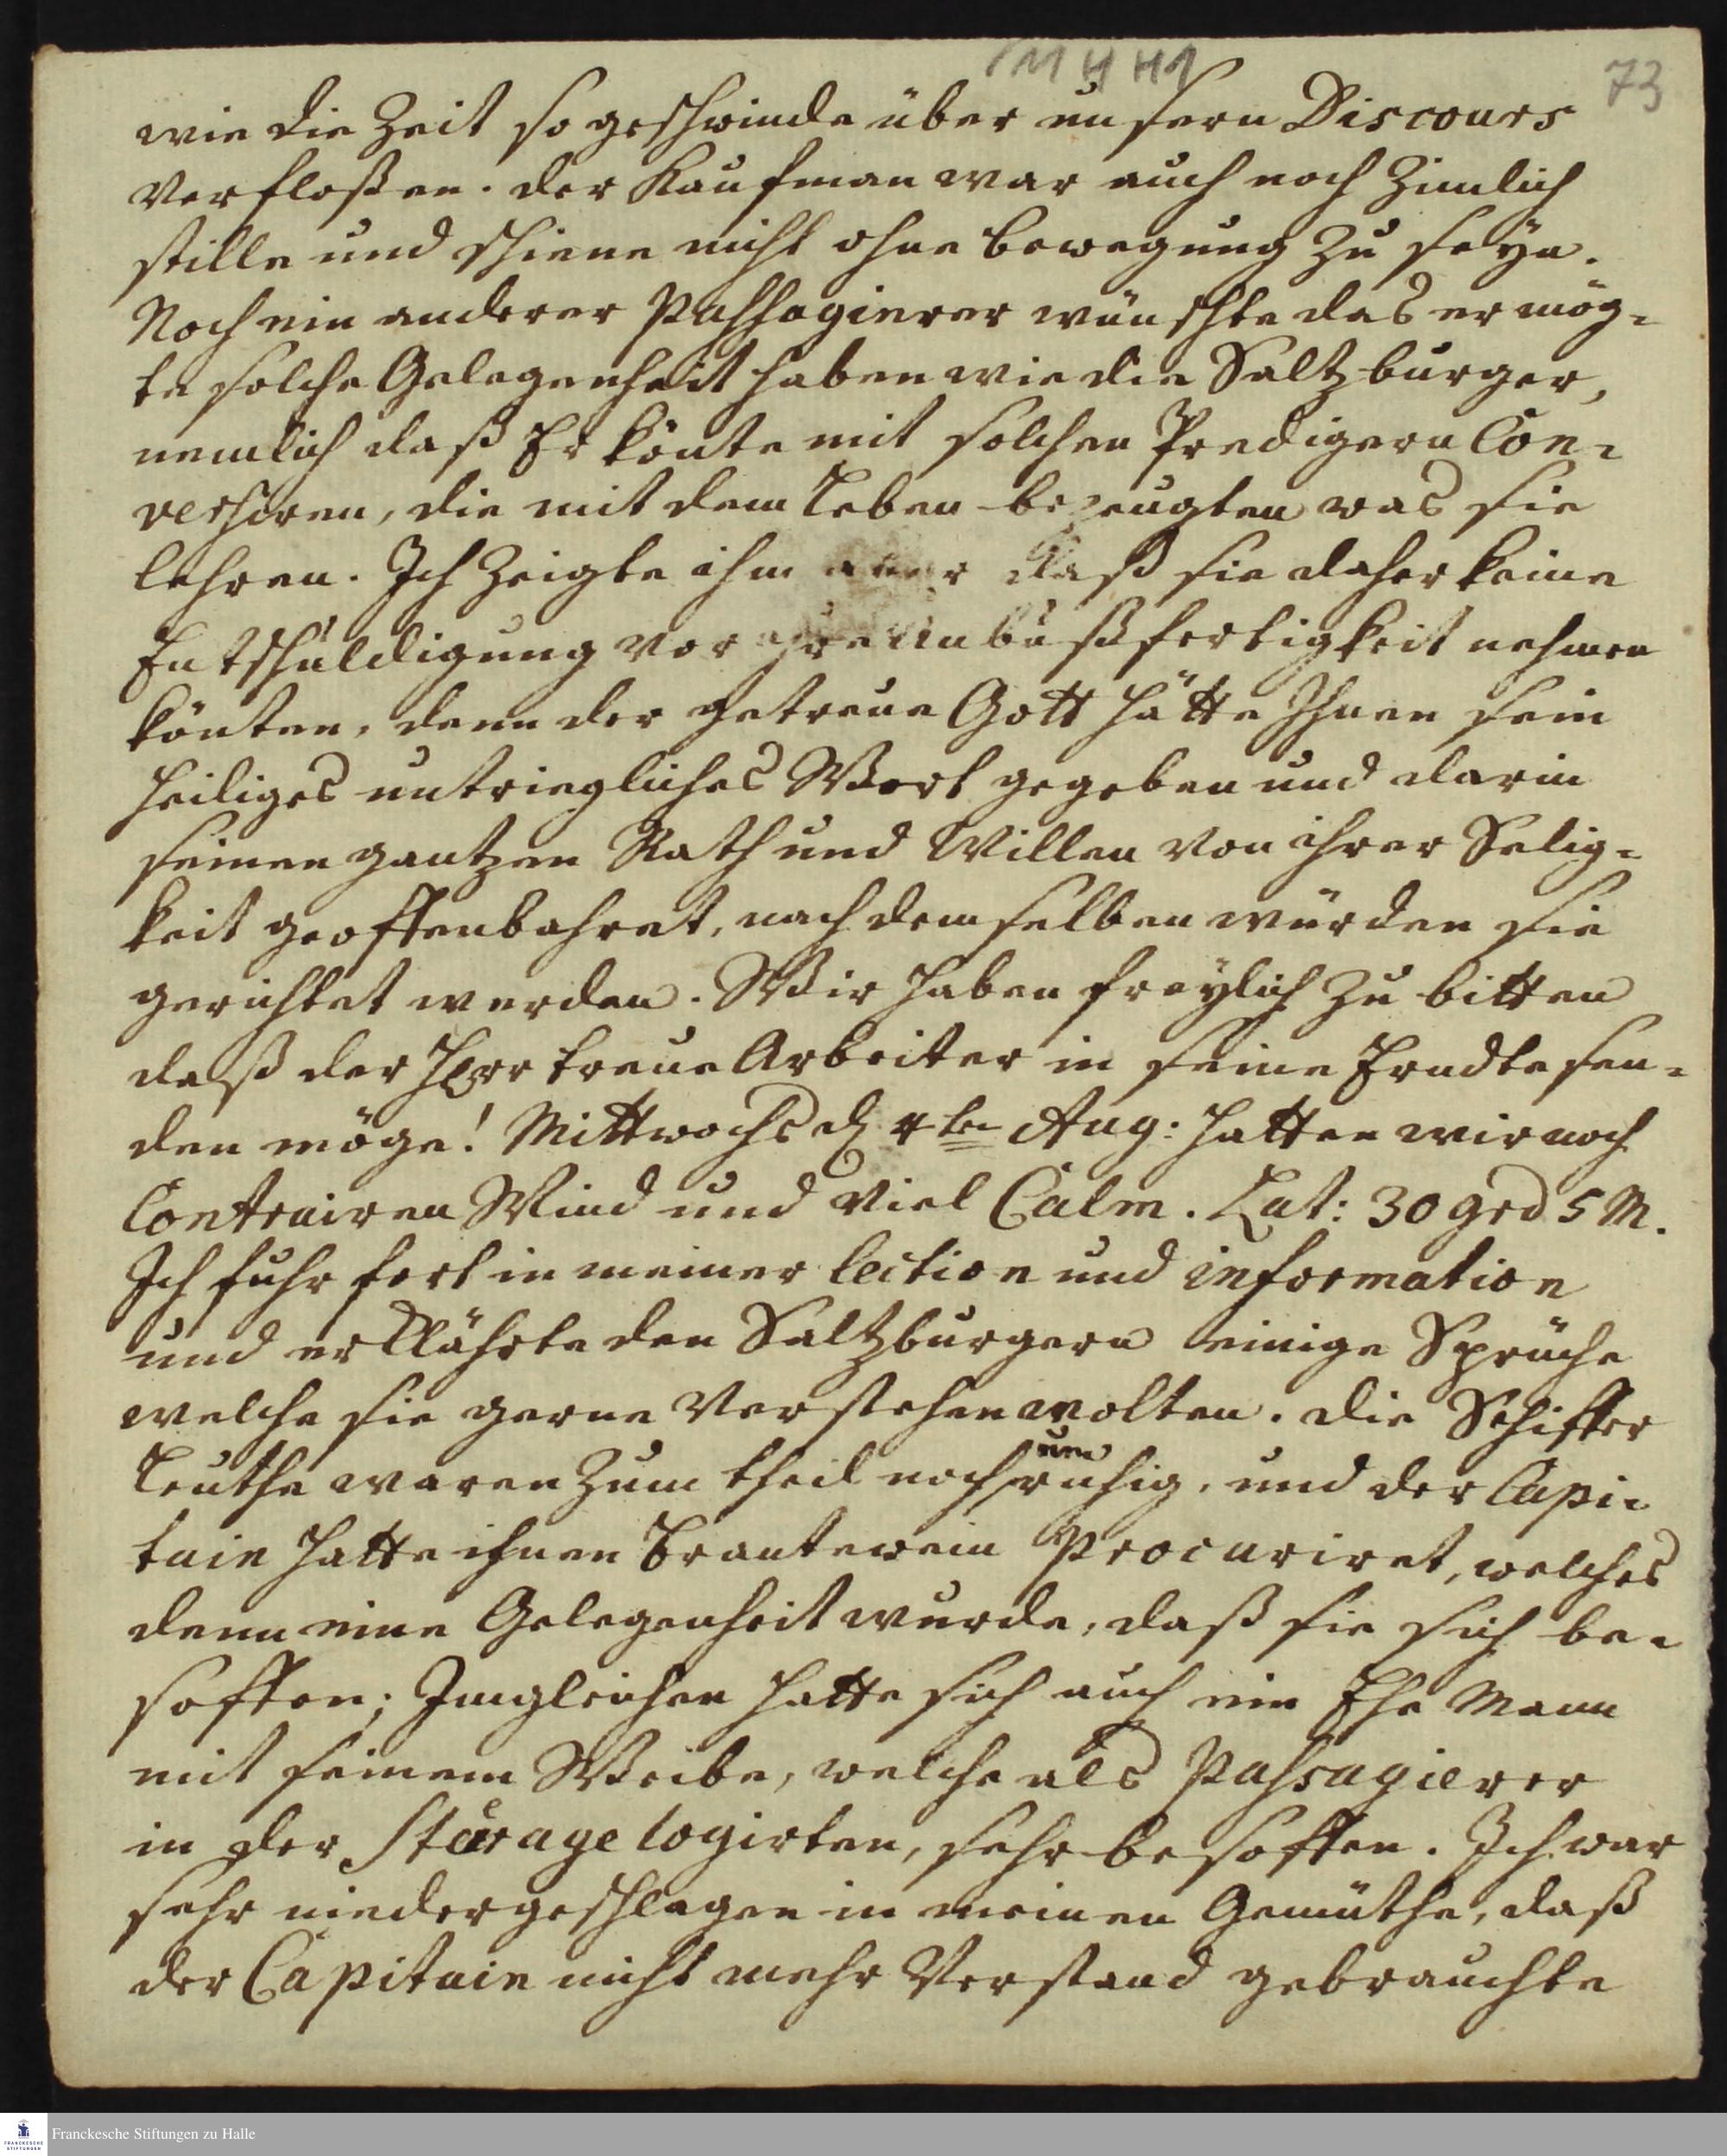 73
wie die Zeit so geschwinde über unsern Discours
verfloßen. der Kaufman war auch noch Zimlich
stille und schiene nicht ohne bewegung zu seyn.
Noch ein anderer Passagierer wünschte das er mög-
te solche Gelegenheit haben wie die Saltzburger,
nemlich daß Er könte mit solchen Predigern Con-
versiren, die mit dem Leben bezeugten was sie
lehren. Ich Zeigte ihm aber daß sie daher keine
Entschuldigung vor ihre Unbußfertigkeit nehmen
könten, denn der getreue Gott hätte Ihnen sein
heiliges untriegliches Wort gegeben und darin
seinen gantzen Rath und Willen von ihrer Selig-
keit geoffenbahret, nach demselben würden sie
gerichtet werden. Wir haben freylich zu bitten
daß der HErr treue Arbeiter in seine Erndte sen-
den möge! Mittwochs d 4ten Aug: hatten wir noch
Contrairen Wind und viel Calm. Lat: 30 grd 5 M.
Ich fuhr fort in meiner lection und information
und erklährte den Saltzburgern einige Sprüche
welche sie gerne verstehen wolten. die Schiffer
Leuthe waren zum theil noch unruhig, und der Capi-
tain hatte ihnen Brantewein procuriret, welches
denn eine Gelegenheit wurde, daß sie sich be-
soffen; Imgleichen hatte sich auch ein Ehe Mann
mit seinem Weibe, welche als Passagierer
in der Stärage logirten, sehr besoffen. Ich war
sehr niedergeschlagen in meinen Gemüthe, daß
der Capitain nicht mehr Verstand gebrauchte
Franckesche Stiftungen zu Halle